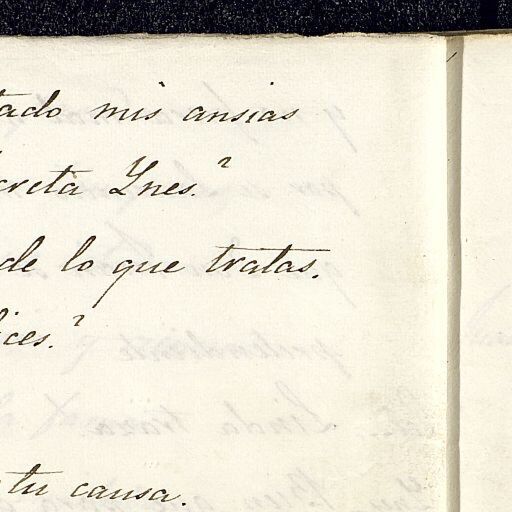 tado mis ansias
creta Ynes.?
de lo que tratas.
ices.?
tu causa.